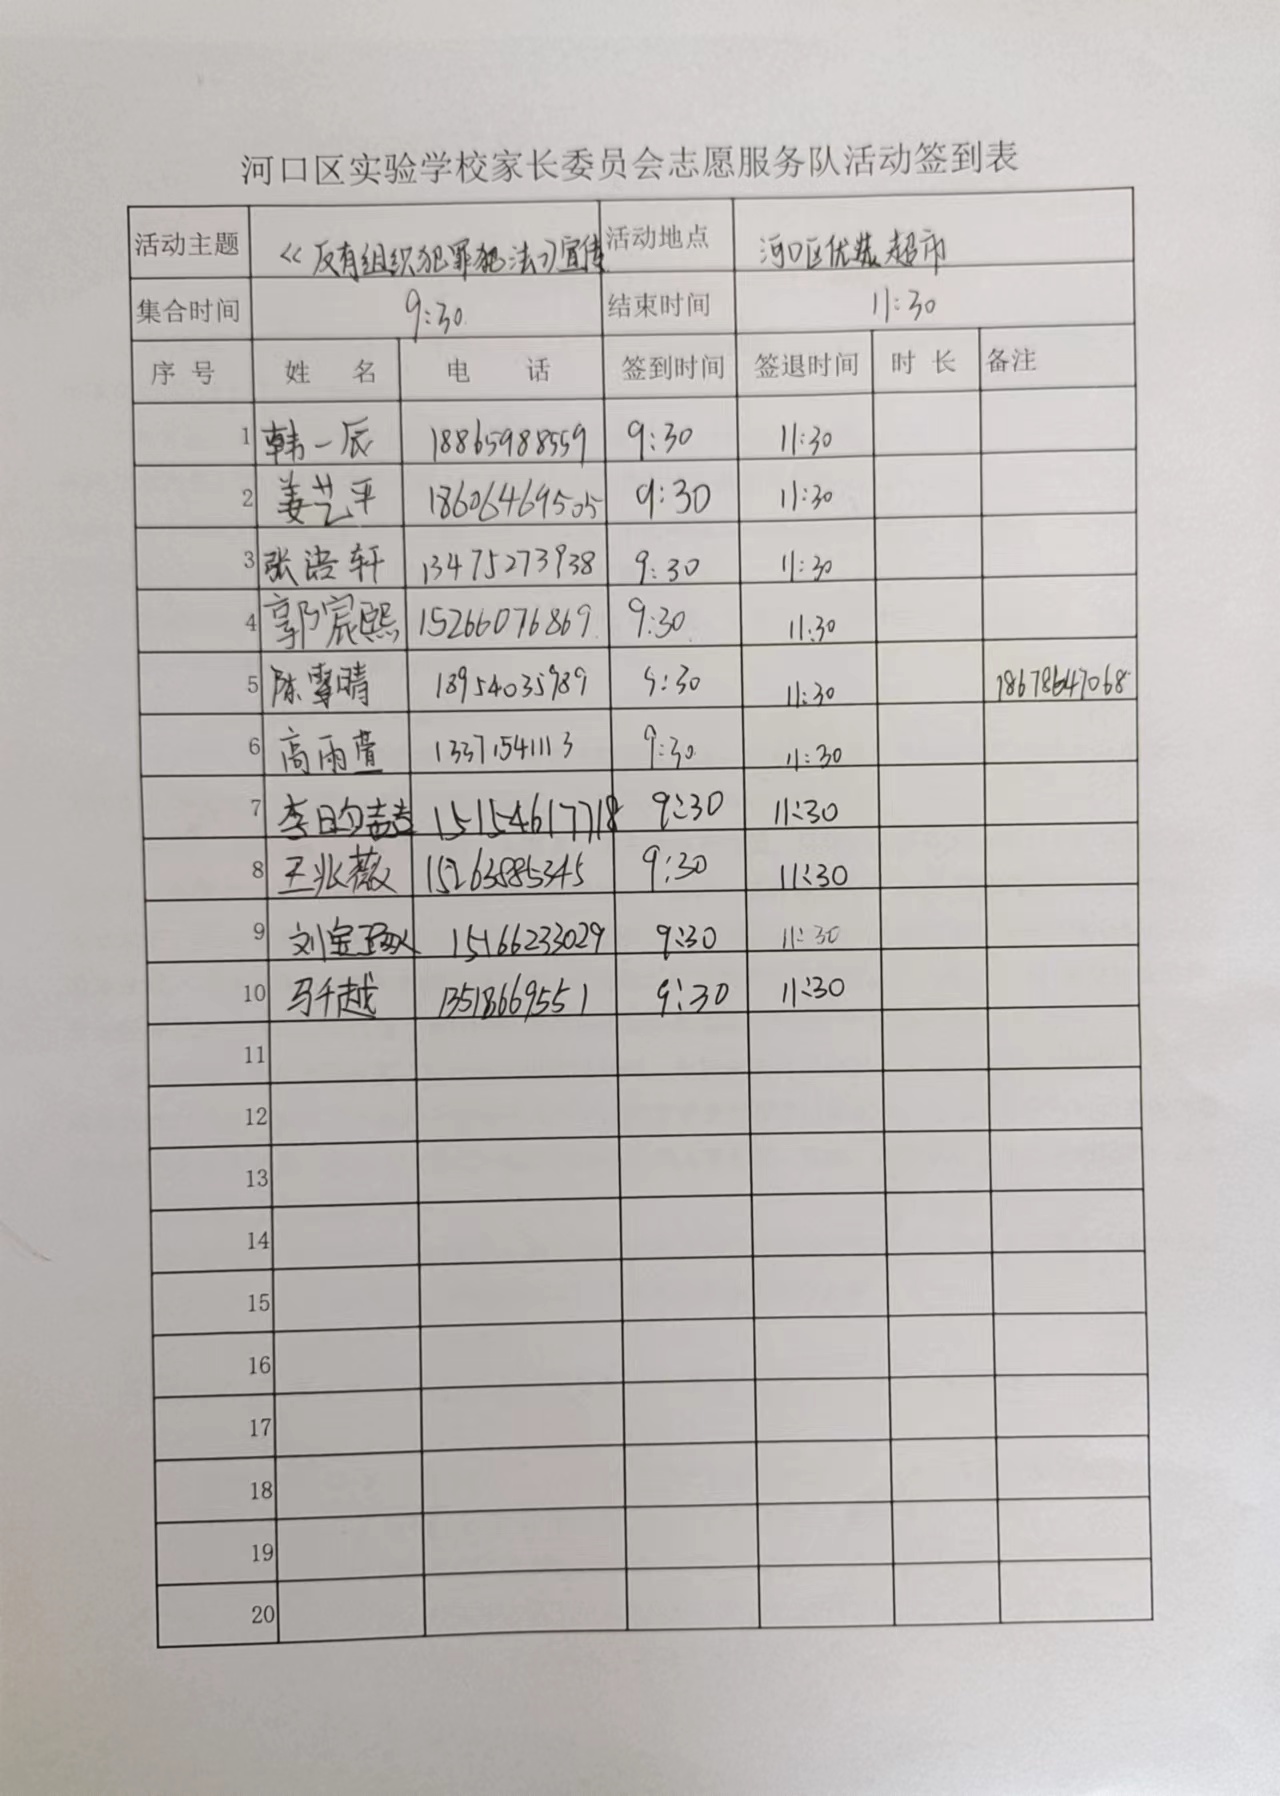 河口区实验学校家长委员会志愿服务队活动签到表
活动主题 《反有组织犯罪犯法》宣传 活动地点 河口区优装超市
集合时间 9:30 结束时间 11:30
序号 姓名 电话 签到时间 签退时间 时长 备注
1 韩一辰 18865988559 9:30 11:30
2 姜艺平 18606469505 9:30 11:30
3 张浩轩 13475273938 9:30 11:30
4 郭宸熙 15266076869 9:30 11:30
5 陈雪晴 18954035989 9:30 11:30 18678647068
6 高雨萱 13371541113 9:30 11:30
7 李昀喆 15154617718 9:30 11:30
8 王兆薇 15263885345 9:30 11:30
9 刘宝 15166233029 9:30 11:30
10 马千越 13518669551 9:30 11:30
11
12
13
14
15
16
17
18
19
20